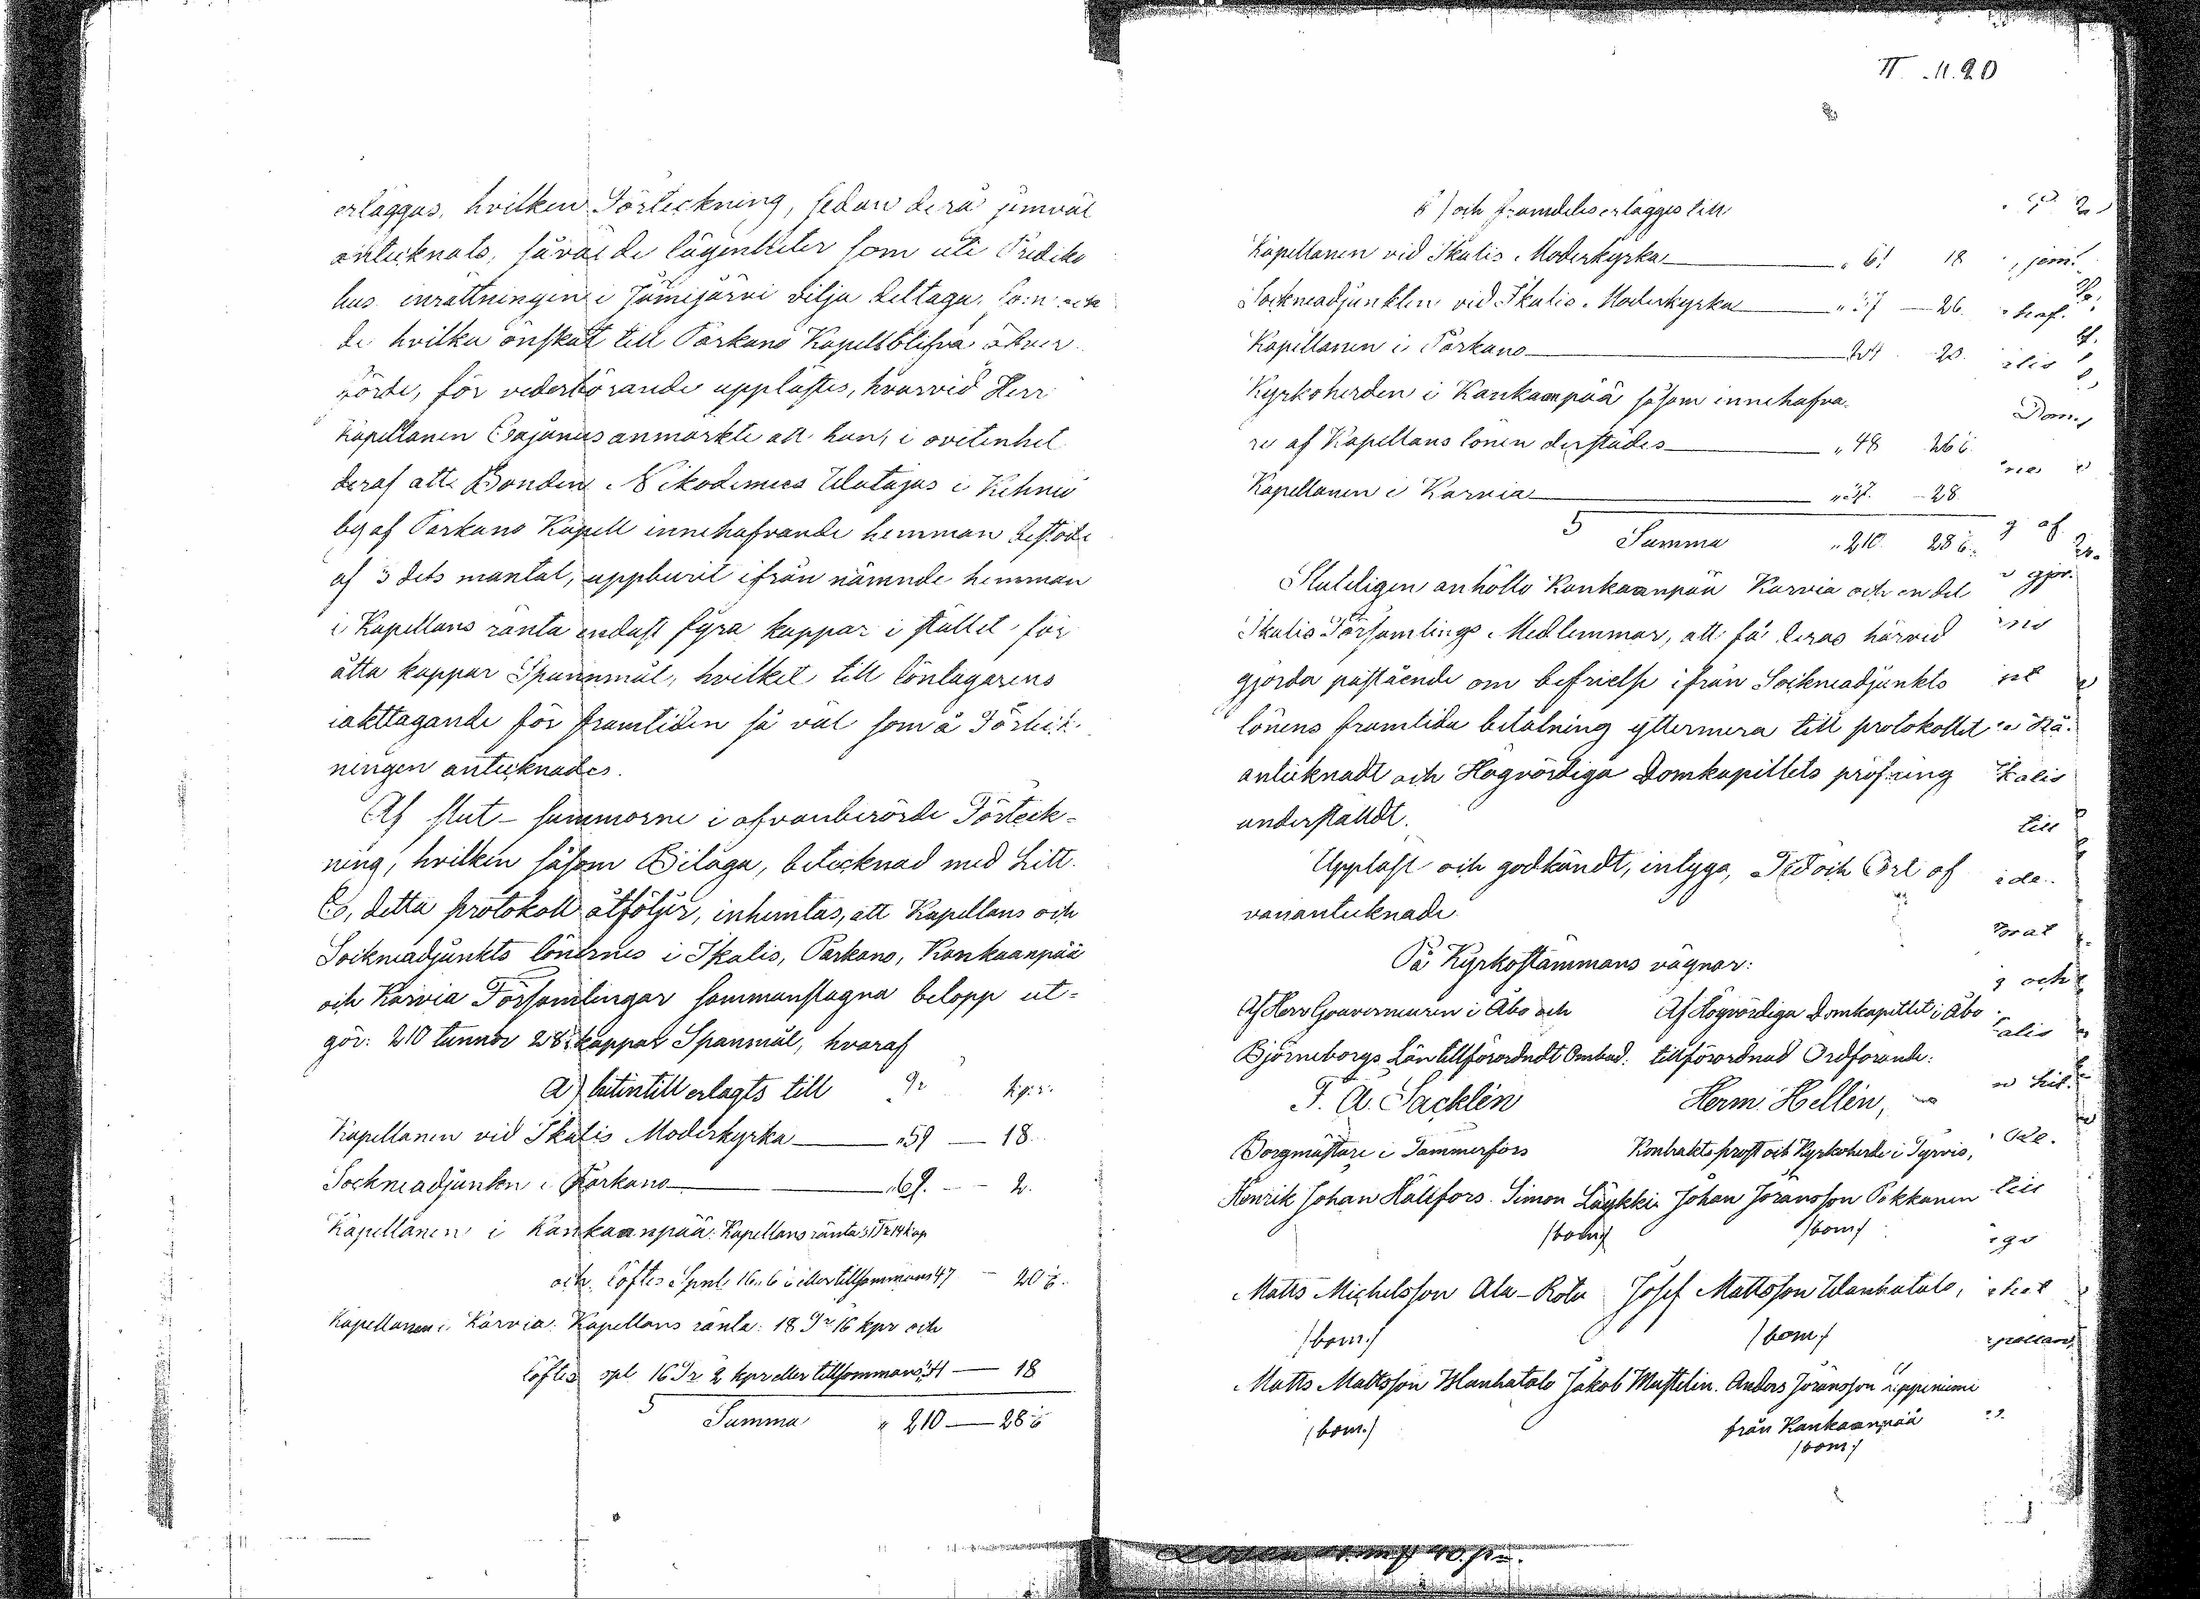 erläggas, hvilken Förteckning, sedan derå jemväl
antecknats, såväl de lägenheter som uti Predike
hus inrättningen i Jämijärvi vilja deltaga, som ock
de hvilka önskat till Parkano Kapell blifva öfver
förde, för vederbörande upplästes, hvarvid Herr
Kapellanen Cajanus anmärkte att han, i ovetenhet
deraf att Bonden Nikodemus Ulatajas i Kihniö
by af Parkano Kapell innehafvande hemman bestode
af 3 dels mantal, uppburit ifrån nämnde hemman
i Kapellans ränta endast fyra kappar i stället för
åtta kappar Spannmål, hvilket till löntagarens
iakttagande för framtiden så väl som å Förteck
ningen antecknades.
Af slut-summorne i ofvanberörde Förteck-
ning, hvilken såsom Bilaga, betecknad med Litt.
C, detta protokoll åtföljer, inhemtas, att Kapellans och
Socknadjunkts lönernes i Ikalis, Parkano, Kankaanpää
och Karvia Församlingar sammanslagna belopp ut-
gör: 210 tunnor 28 kappar Spanmål, hvaraf
a) hitintill erlagts till Tr kpr:
Kapellanen vid Ikalis Moderkyrka „59 — 18
Socknadjunkten i Parkano „ — 2.
Kapellanen i Kankaanpää: Kapellans ränta 31 Tr 14 kap
och löftes Spnl. 16. 6 eller tillsammans 47 — 20
Kapellanen i Karvia: Kapellans ränta: 18 Tr 16 kpr och
löftes spl 16 Tr 2 kpr eller tillsammans 34 — 18
Summa „ 210 — 28
II. M. 20
b) och framdeles erlägges till
Kapellanen vid Ikalis Moderkyrka „ 61 18
Socknadjunkten vid Ikalis Moderkyrka „ 37 — 26.
Kapellanen i Parkano 24 20.
Kyrkoherden i Kankaanpää såsom innehafva-
re af Kapellans lönen derstädes „ 48 26
Kapellanen i Karvia „ — 28
Summa „ 210 28
Sluteligen anhöllo Kankaanpää Karvia och en del
Ikalis Församlings Medlemmar, att få deras härvid
gjorda påstående om befrielse ifrån Socknadjunkts
lönens framtida betalning yttermera till protokollet
antecknadt och Högvördiga Domkapitlets pröfning
underställdt.
Uppläst och godkändt, intyga, Tid och Ort of
vanantecknade.
På Kyrkostämmans vägnar:
Af Herr Gouverneuren i Åbo och Af Högvördiga Domkapitlet i Åbo
Björneborgs Län tillförordnadt Ombud. tillförordnad Ordförande:
F. A. Sacklén Herm. Hellén,
Borgmästare i Tammerfors Kontraktsprost och Kyrkoherde i Tyrvis,
Henrik Johan Hällfors. Simon Läykki Johan Jöransson Pokkanen
(bom.) (bom.)
Matts Michelsson Ala-Rotu Josef Mattsson Wanhatalo,
(bom.) (bom.)
Matts Mattsson Wanhatalo Jakob Mustelin. Anders Jöransson
(bom.) från Kankaanpää
(bom.)